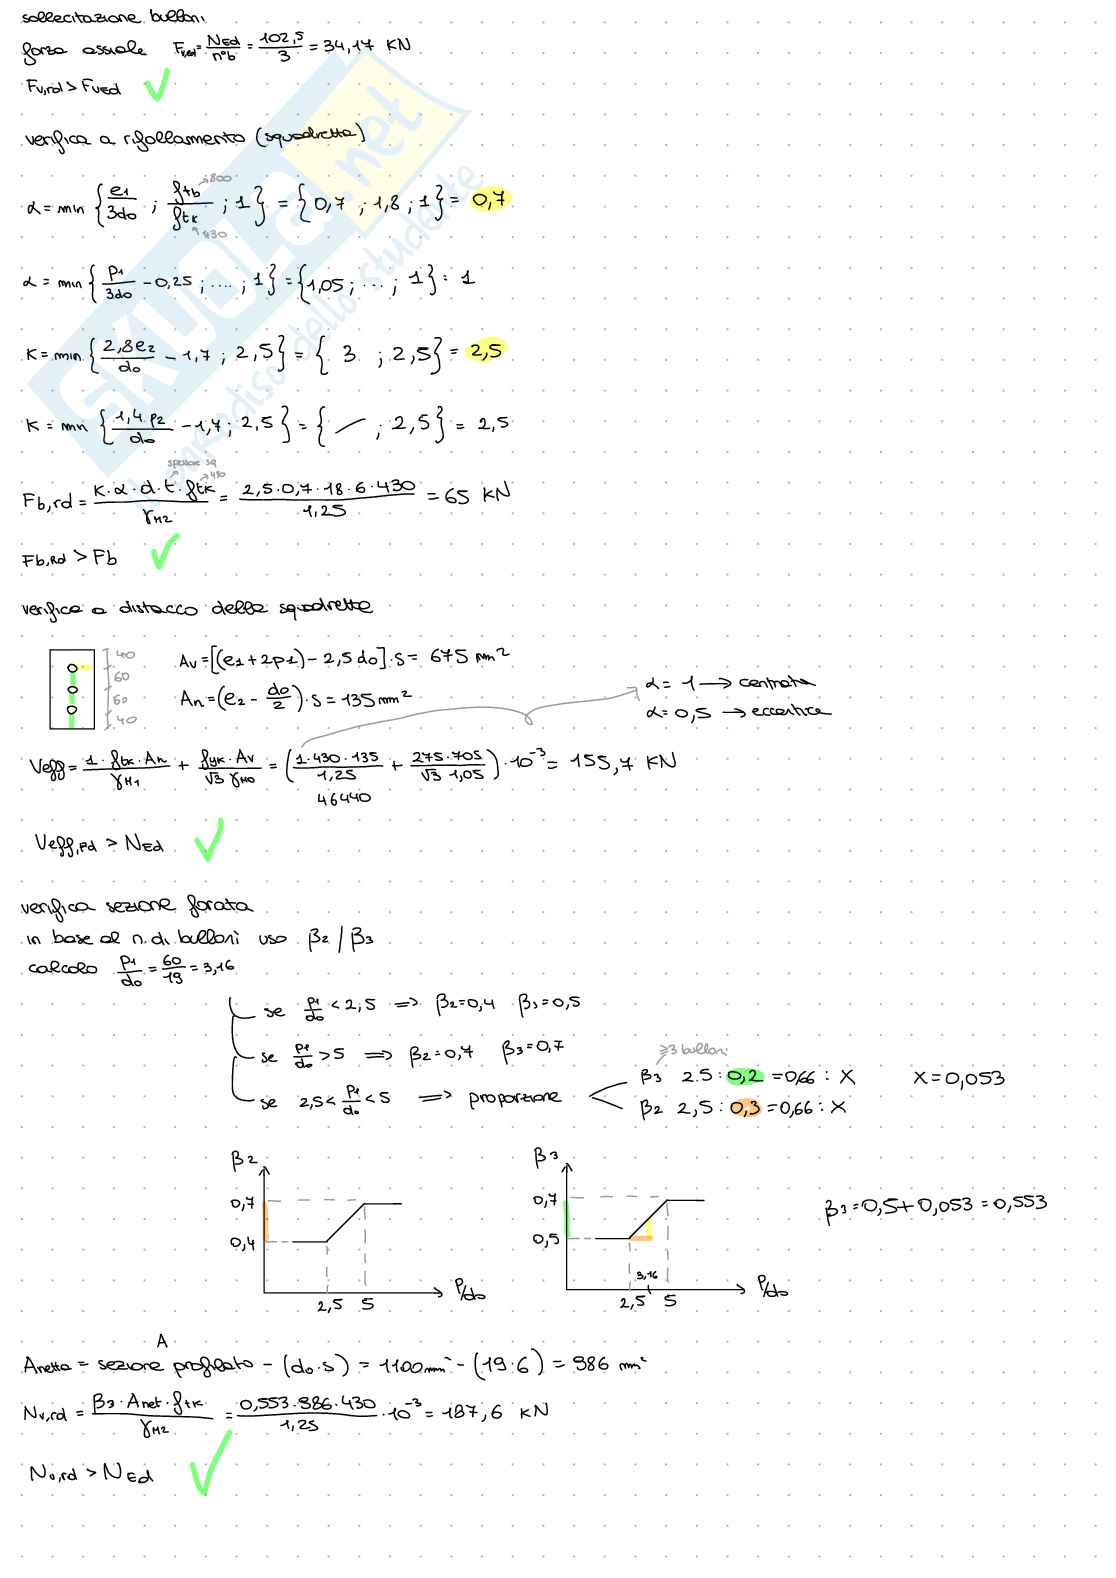 sollecitazione bulloni
forza assiale Fv,ed = NEd/n°b = 102,5/3 = 34,17 KN
Fv,rd > FvEd ✓
verifica a rifollamento (squadretta)
α = min { e1/3do ; ftb/ftk ; 1 } = { 0,7 ; 1,8 ; 1 } = 0,7
→ 800
→ 430
α = min { p1/3do - 0,25 ; .... ; 1 } = { 1,05 ; ... ; 1 } = 1
K = min { 2,8e2/do - 1,7 ; 2,5 } = { 3 ; 2,5 } = 2,5
K = min { 1,4 p2/do - 1,7 ; 2,5 } = { / ; 2,5 } = 2,5
spessore sq
→ 430
Fb,rd = K·α·d·t·ftk/γM2 = 2,5·0,7·18·6·430/1,25 = 65 KN
Fb,Rd > Fb ✓
verifica a distacco delle squadrette
40
60
60
40
Av = [(e1 + 2p1) - 2,5 do]·s = 675 mm²
An = (e2 - do/2)·s = 135 mm²
α = 1 → centrata
α = 0,5 → eccentrica
Veff = 1·ftk·An/γM1 + fyk·Av/√3 γM0 = (1·430·135/1,25 + 275·705/√3 1,05)·10⁻³ = 155,7 KN
46440
Veff,Rd > NEd ✓
verifica sezione forata
in base al n. di bulloni uso β2 / β3
calcolo p1/do = 60/19 = 3,16
se p1/do < 2,5 => β2 = 0,4 β3 = 0,5
se p1/do > 5 => β2 = 0,7 β3 = 0,7
se 2,5 < p1/do < 5 => proporzione
≥3 bulloni
β3 2.5 : 0,2 = 0,66 : X X = 0,053
β2 2,5 : 0,3 = 0,66 : X
β2
0,7
0,4
2,5 5 P/do
β3
0,7
0,5
3,16
2,5 5 P/do
β3 = 0,5 + 0,053 = 0,553
A
Anetta = sezione profilato - (do·s) = 1100 mm² - (19·6) = 986 mm²
Nv,rd = β3·Anet·ftk/γM2 = 0,553·986·430/1,25 ·10⁻³ = 187,6 KN
Nv,rd > NEd ✓
SKUOLA.net
il paradiso dello studente